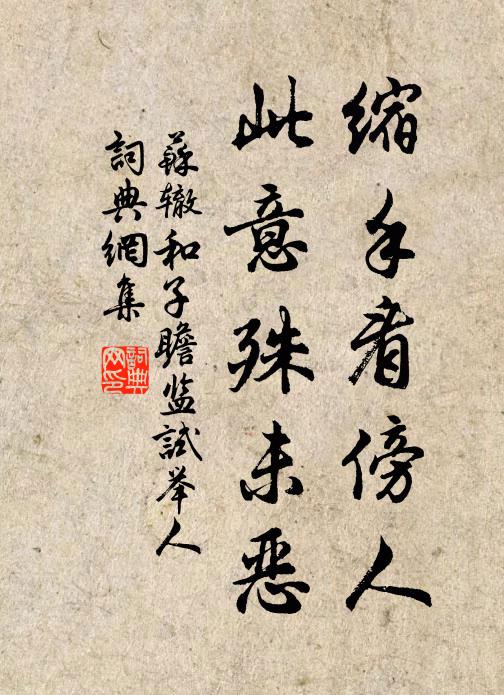 缩手看傍人
此意殊未恶
蘇辙和子瞻监試举人
詞典網集
詞典
网印